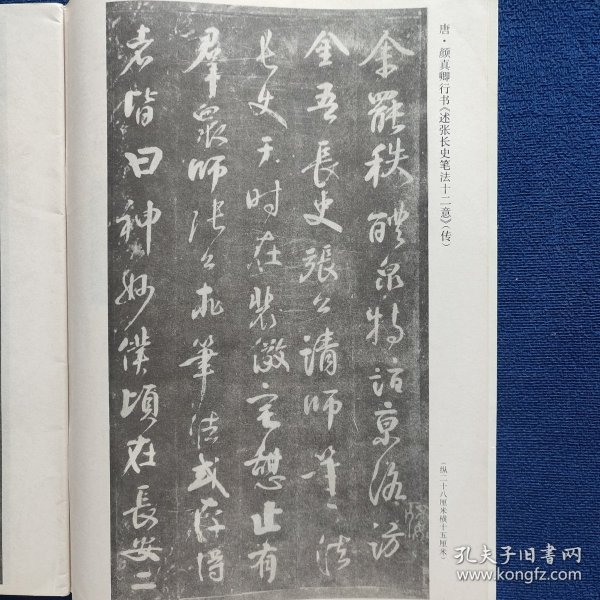 唐·颜真卿行书《述张长史笔法十二意》（传）
（纵二十八厘米横十五厘米）
余罷秩醴泉特訪京洛訪
金吾長史張公請師筆法
長史于時在裴儆宅憩止有
羣眾師張公求筆法或存得
者皆曰神妙僕頃在長安二
孔夫子旧书网
www.kongfz.com